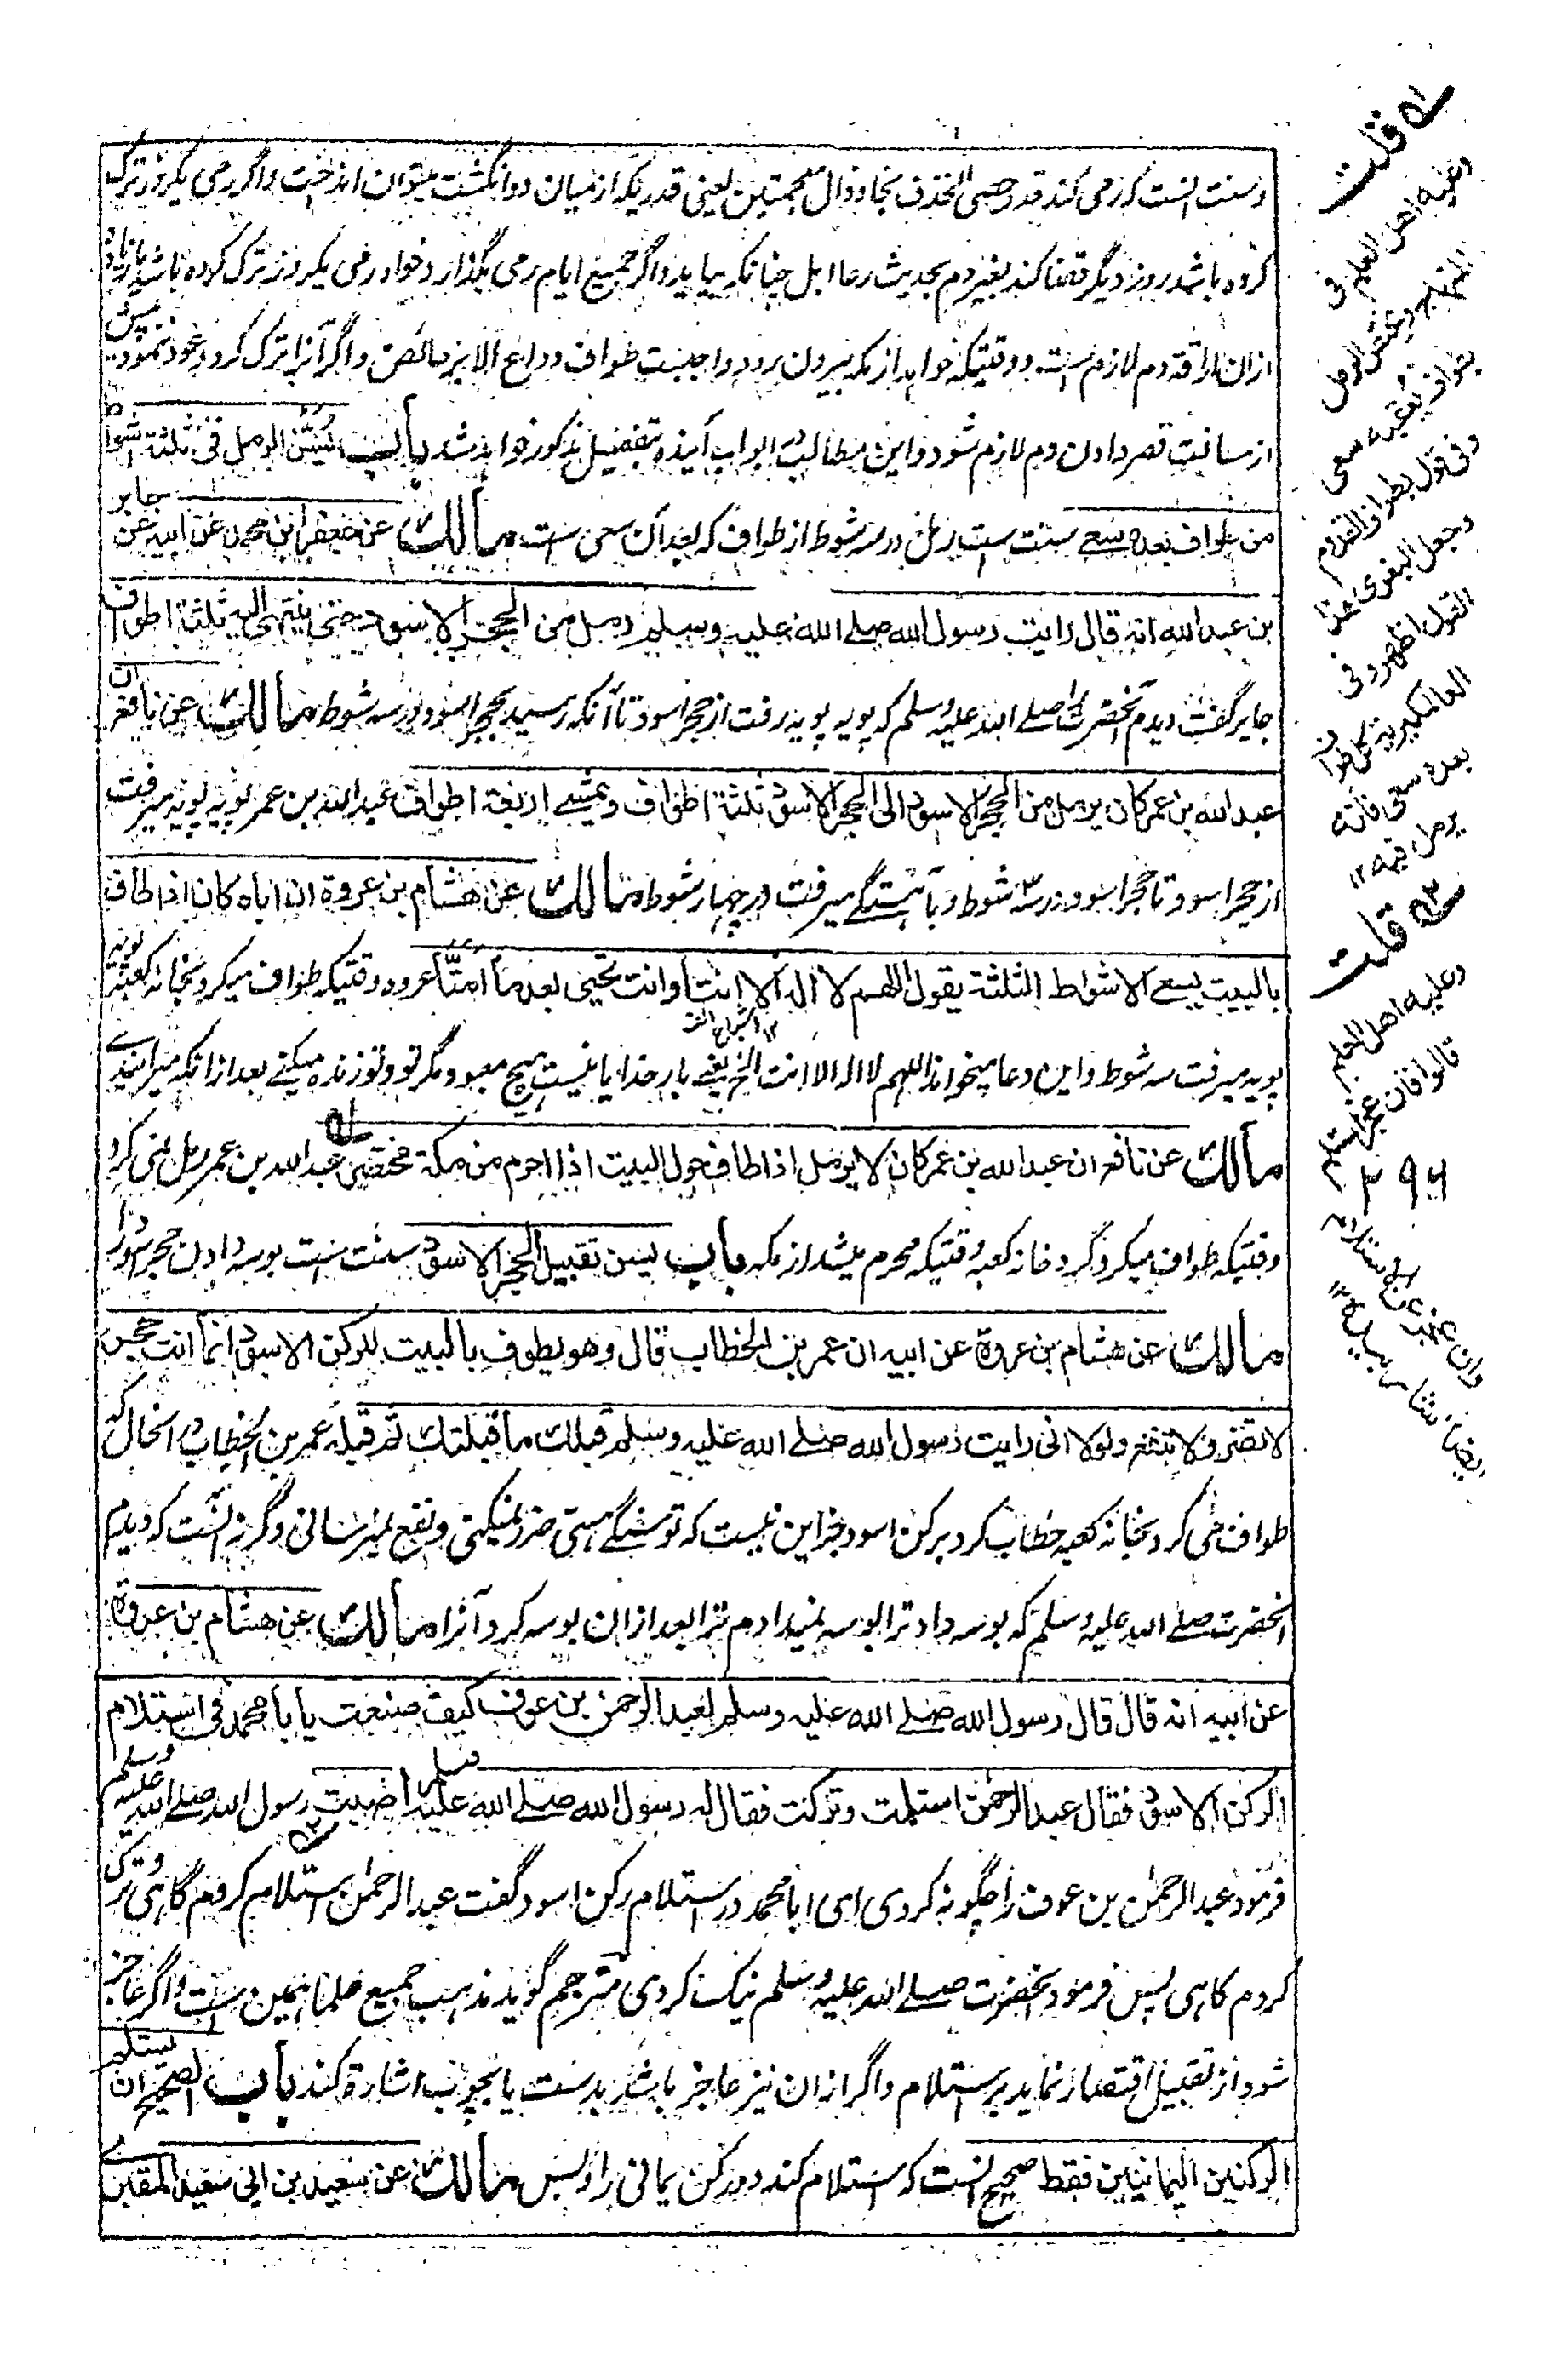 وسنت آنست که رمی کند قدر حصی الخذف بخا و ذال معجمتین یعنی قدریکه از میان دو انگشت میتوان انداخت و اگر رمی یکروز ترک
کرده باشد روز دیگر قضا کند بغیر دم بحدیث رعا ابل چنانکه بیاید و اگر جمیع ایام رمی بگذارد خواه رمی یکروز ترک کرده باشد یا زیاده
ازان اراقه دم لازم ست و وقتیکه خواهد از مکه بیرون برود واجبست طواف وداع الا بر حائض و اگر آنرا ترک کرد و عود ننمود پیش
از مسافت قصر دادن دم لازم شود و این مطالب در ابواب آینده بتفصیل مذکور خواهد شد باب یسن الرمل فی ثلثة اشواط
من طواف بعده سعی سنت ست رمل در سه شوط از طواف که بعد آن سعی ست مالك عن جعفر ابن محمد عن ابیه عن جابر
بن عبد الله انه قال رایت رسول الله صلی الله علیه وسلم رمل من الحجر الاسود حتی انتهی الیه ثلثة اطواف
جابر گفت دیدم آنحضرت را صلی الله علیه وسلم که پویه پویه رفت از حجر اسود تا آنکه رسید بحجر اسود در سه شوط مالك عن نافع ان
عبد الله بن عمر کان یرمل من الحجر الاسود الی الحجر الاسود ثلثة اطواف ویمشی اربعة اطواف عبد الله بن عمر پویه پویه میرفت
از حجر اسود تا حجر اسود در سه شوط و بآهستگی میرفت در چهار شوط مالك عن هشام بن عروة ان اباه کان اذا طاف
بالبیت یسعی الاشواط الثلثة یقول اللهم لا اله الا انتا وانت تحیی بعد ما امتا عروه وقتیکه طواف میکرد بخانه کعبه پویه
پویه میرفت سه شوط و این دعا میخواند اللهم لا اله الا انت الخ یعنی بار خدایا نیست هیچ معبود مگر تو و تو زنده میکنی بعد ازانکه میرانیدی
مالك عن نافع ان عبد الله بن عمر کان لا یرمل اذا طاف حول البیت اذا احرم من مکة عبد الله بن عمر رمل نمی کرد
وقتیکه طواف میکرد گرد خانه کعبه وقتیکه محرم میشد از مکه باب یسن تقبیل الحجر الاسود سنت ست بوسه دادن حجر اسود را
مالك عن هشام بن عروة عن ابیه ان عمر بن الخطاب قال وهو یطوف بالبیت للرکن الاسود انما انت حجر
لا تضر ولا تنفع ولولا انی رایت رسول الله صلی الله علیه وسلم قبلك ما قبلتك ثم قبله عمر بن الخطاب در آنحال که
طواف می کرد بخانه کعبه خطاب کرد برکن اسود جز این نیست که تو سنگی هستی ضرر نمیکنی و نفع نمیرسانی و گر نه آنست که دیدم
آنحضرت صلی الله علیه وسلم که بوسه داد ترا بوسه نمیدادم ترا بعد ازان بوسه کرد آنرا مالك عن هشام بن عروة
عن ابیه انه قال قال رسول الله صلی الله علیه وسلم لعبد الرحمن بن عوف کیف صنعت یا ابا محمد فی استلام
الرکن الاسود فقال عبد الرحمن استلمت وترکت فقال له رسول الله صلی الله علیه وسلم اصبت رسول الله صلی الله علیه وسلم
فرمود عبد الرحمن بن عوف را چگونه کردی ای ابا محمد در استلام رکن اسود گفت عبد الرحمن استلام کردم گاهی و ترک
کردم گاهی پس فرمود آنحضرت صلی الله علیه وسلم نیک کردی مترجم گوید مذهب جمیع علما همین ست و اگر عاجز
شود از تقبیل اقتصار نماید بر استلام و اگر ازان نیز عاجز باشد بدست یا بچوب اشارة کند باب الصحیح ان یستلم
الرکنین الیمانیین فقط صحیح آنست که استلام کند دو رکن یمانی را و بس مالك عن سعید بن ابی سعید المقبری
قلت
وعلیه اهل العلم فی
المنهاج ویختص الرمل
بطواف یعقبه سعی
وفی قول بطواف القدوم
وجعل البغوی هذا
القول اظهر وفی
العالمگیریة کل طواف
بعده سعی فانه
یرمل فیه ۱۲
قلت
وعلیه اهل العلم
قالوا فان عجز استلم
۲۹۶
وان عجز عن الاستلام